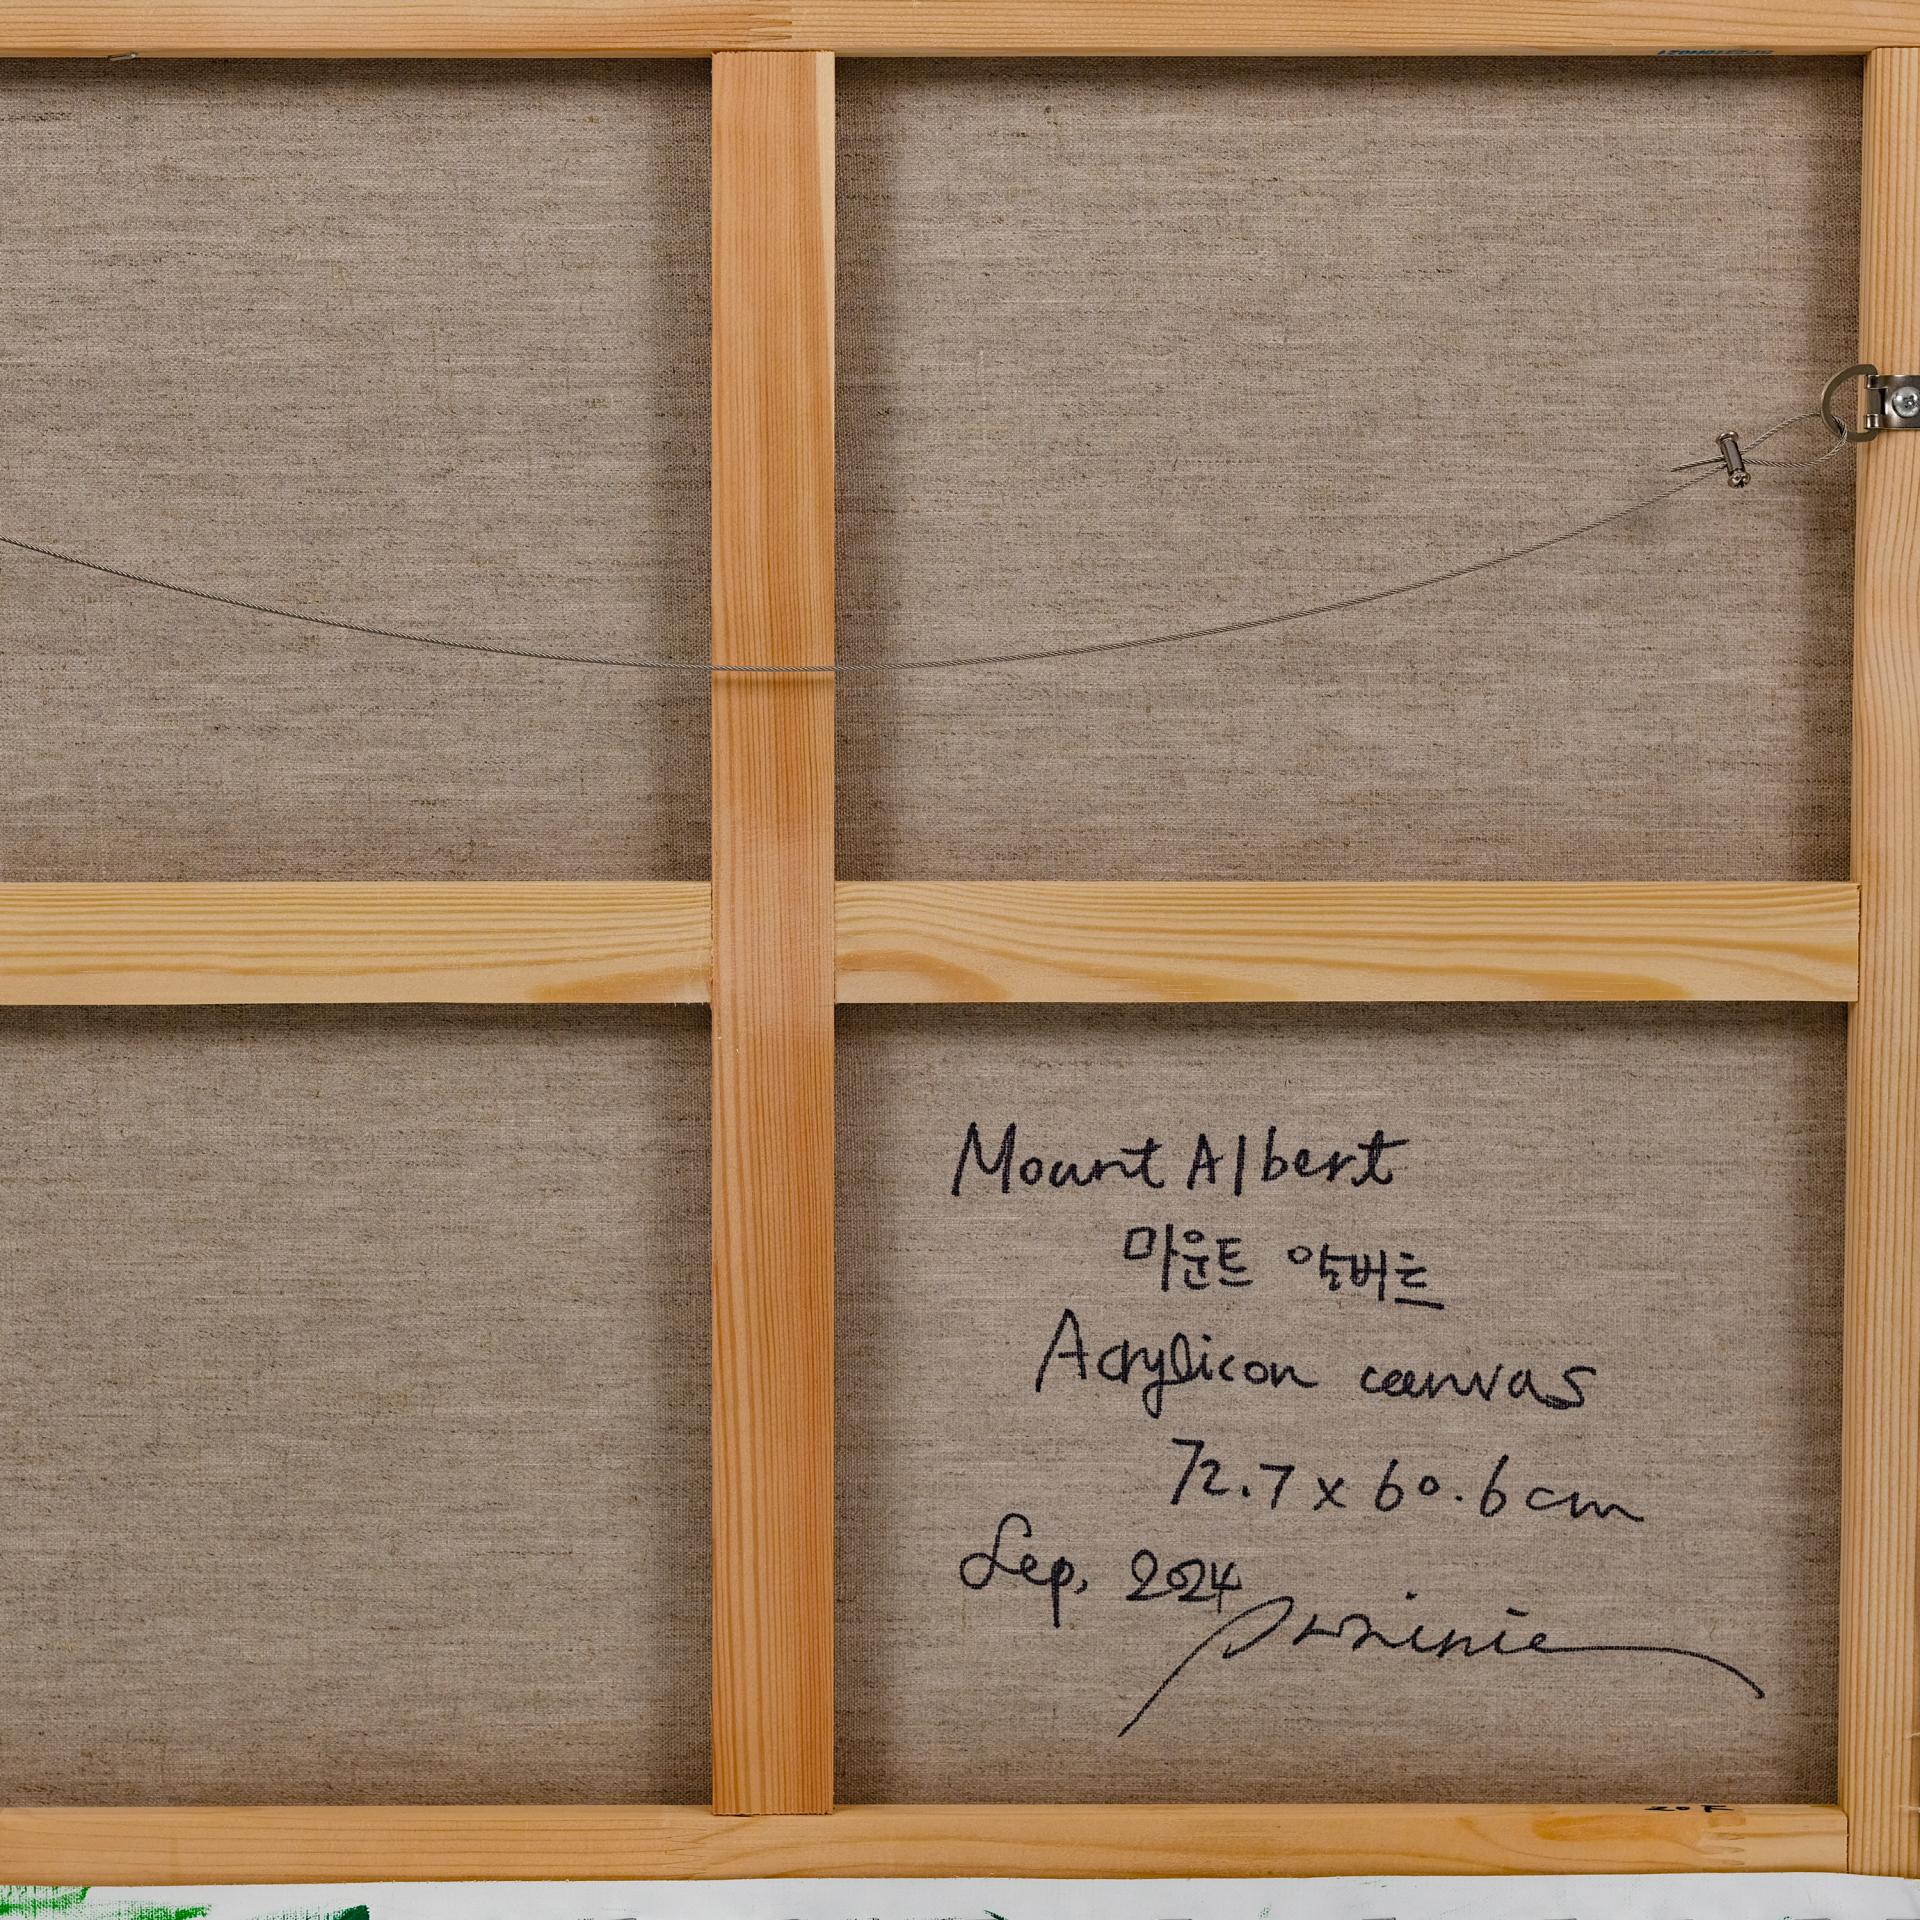 Mount Albert
마운트 알버트
Acrylic on canvas
72.7 x 60.6 cm
Sep, 2024
20F